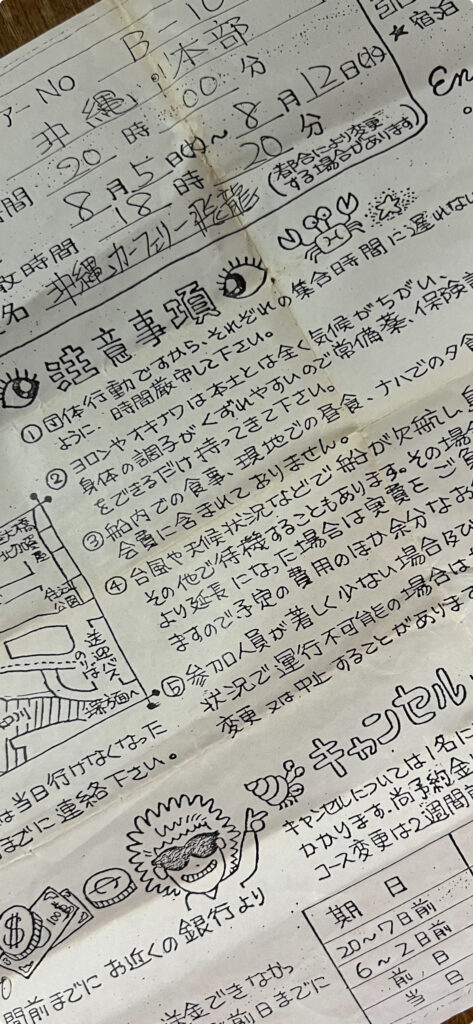 ツアーNo B-10
沖縄, 本部
20時00分
8月5日(火)~8月12日(火)
18時20分
(都合により変更する場合があります)
名 沖縄カーフェリー飛龍
★宿泊
En
注意事項
① 団体行動ですから、それぞれの集合日時間に遅れない
ように、時間厳守して下さい。
② ヨロンやオキナワは本土とは全く気候がちがい、
身体の調子がくずれやすいので常備薬、保険
をできるだけ持ってきて下さい。
③ 船内での食事、現地での昼食、ナハでの夕食
会費に含まれてありません。
④ 台風や天候状況などで船が欠航し
その他で待機することもあります。その場合
より延長になった場合は実費をご負
ますので予定の費用のほか余分なお
⑤ 参加人員が著しく少ない場合及び
状況で運行不可能の場合は
変更又は中止することがありま
公園
送迎バス
のりば
は当日行けなくなった
までに連絡下さい。
キャンセル
キャンセルについては1名に
かかります。尚予約金
コース変更は2週間前
間前までにお近くの銀行より
送金できなかっ
前日までに
期日
20~7日前
6~2日前
前日
当日